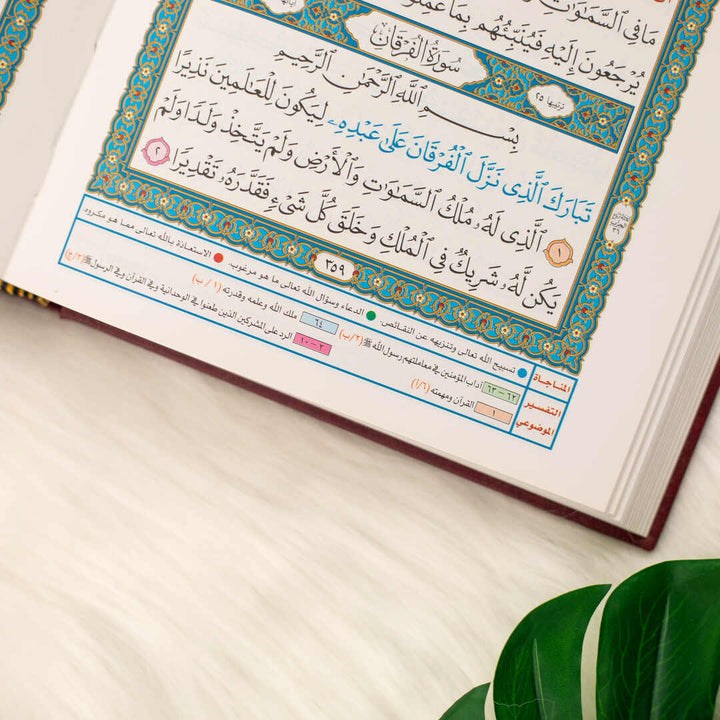 مَا فِي السَّمَٰوَٰتِ
يُرْجَعُونَ إِلَيْهِ فَيُنَبِّئُهُم بِمَا عَمِلُوا
آياتها
سُورَةُ الْفُرْقَانِ
ترتيبها ٢٥
بِسْمِ اللَّهِ الرَّحْمَٰنِ الرَّحِيمِ
تَبَارَكَ الَّذِي نَزَّلَ الْفُرْقَانَ عَلَىٰ عَبْدِهِۦ لِيَكُونَ لِلْعَالَمِينَ نَذِيرًا
١ الَّذِي لَهُۥ مُلْكُ السَّمَٰوَٰتِ وَالْأَرْضِ وَلَمْ يَتَّخِذْ وَلَدًا وَلَمْ
يَكُن لَّهُۥ شَرِيكٌ فِي الْمُلْكِ وَخَلَقَ كُلَّ شَيْءٍ فَقَدَّرَهُۥ تَقْدِيرًا ٢
٣٥٩
المناجاة
تسبيح الله تعالى وتنزيهه عن النقائص. الدعاء وسؤال الله تعالى ما هو مرغوب. الاستعاذة بالله تعالى مما هو مكروه
التفسير الموضوعي
٦٢ – ٦٣ آداب المؤمنين في معاملتهم رسول الله ﷺ (٢/ب) ٦٤ ملك الله وعلمه وقدرته (١/ب)
١ القرآن ومهمته (١/٦) ٢ – ١٠ الرد على المشركين الذين طعنوا في الوحدانية وفي القرآن وفي الرسول ﷺ (٢/ج)